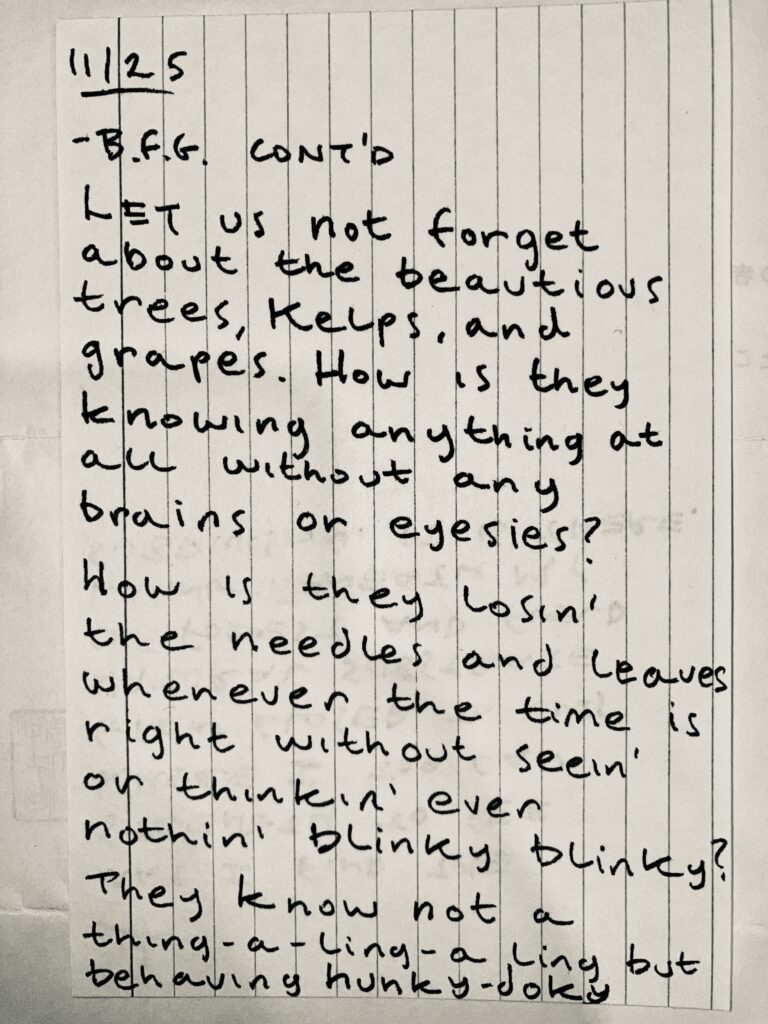 11/25
-B.F.G. CONT'D
LET us not forget
about the beautious
trees, kelps, and
grapes. How is they
knowing anything at
all without any
brains or eyesies?
How is they losin'
the needles and leaves
whenever the time is
right without seein'
or thinkin' ever
nothin' blinky blinky?
They know not a
thing-a-ling-a ling but
behaving hunky-doky